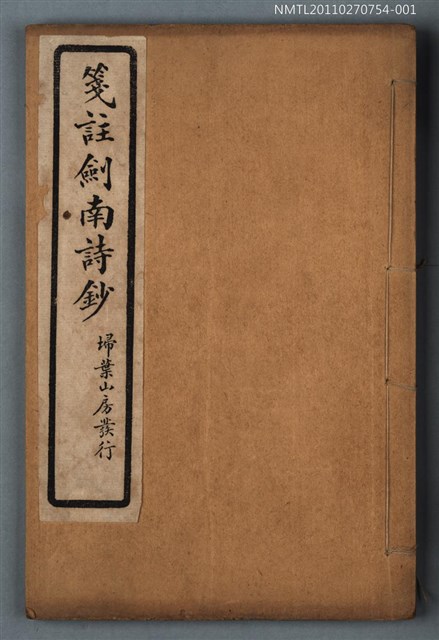 NMTL20110270754-001
箋註劍南詩鈔
埽葉山房發行